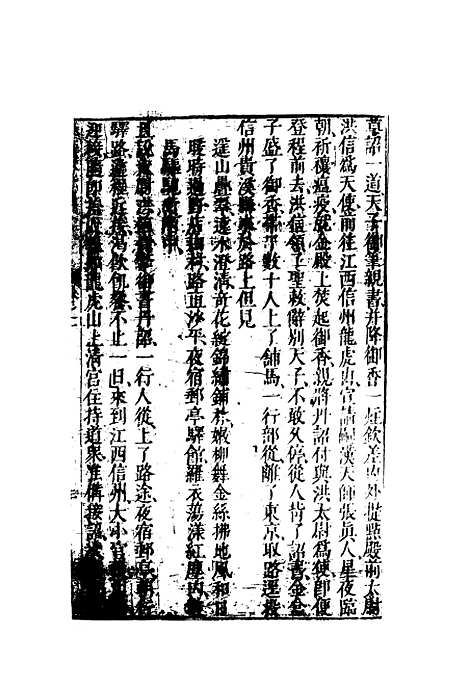 草詔一道天子御筆親書并降御香一炷欽差內外提點殿前太尉
洪信爲天使前往江西信州龍虎山宣請嗣漢天師張眞人星夜臨
朝祈禳瘟疫就金殿上焚起御香親將丹詔付與洪太尉爲使卽便
登程前去洪信領了聖敕辭別天子不敢久停從人背了詔書金盒
子盛了御香帶了數十人上了鋪馬一行部從離了東京取路逕投
信州貴溪縣來於路上但見
遙山疊翠遠水澄清奇花綻錦繡鋪林嫩柳舞金絲拂地風和日
暖時過野店山村路直沙平夜宿郵亭驛館羅衣蕩漾紅塵內
馬
且說太尉洪信 御書丹詔一行人從上了路途夜宿郵亭朝行
驛路遠程近接渴飲飢餐不止一日來到江西信州大小官
迎接隨卽 龍虎山上清宮住持道衆准備接詔